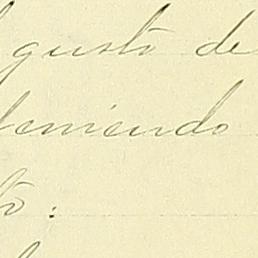 gusto de
teniendo
to: